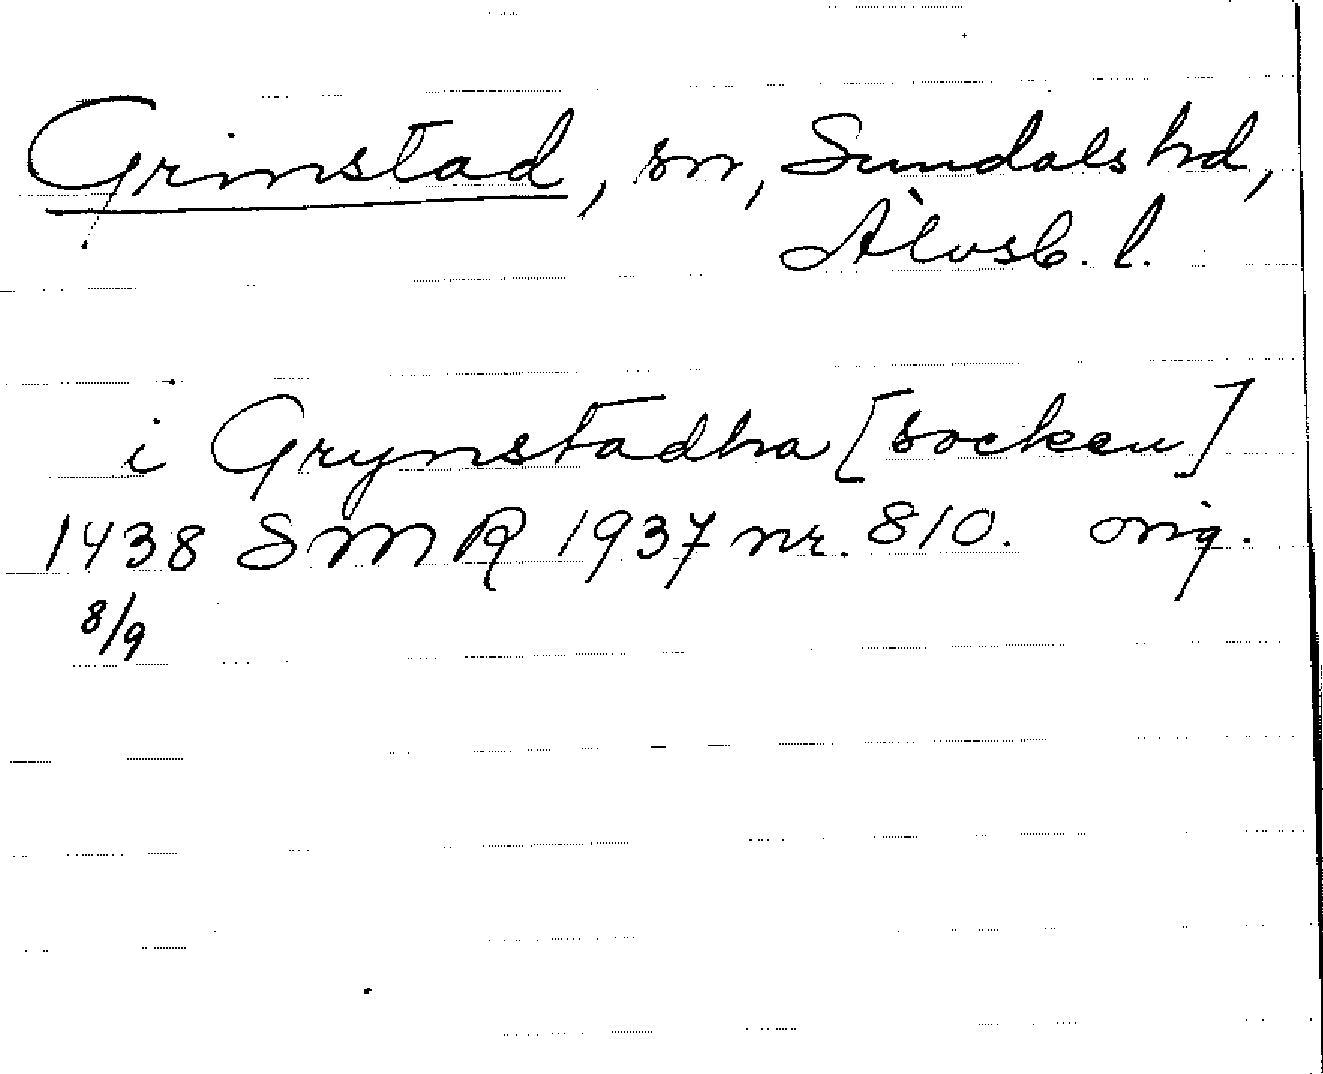 Grinstad, sn, Sundals hd,
Älvsb. l.
i Grynstadha [socken]
1438 SMR 1937 nr. 810. orig.
8/9